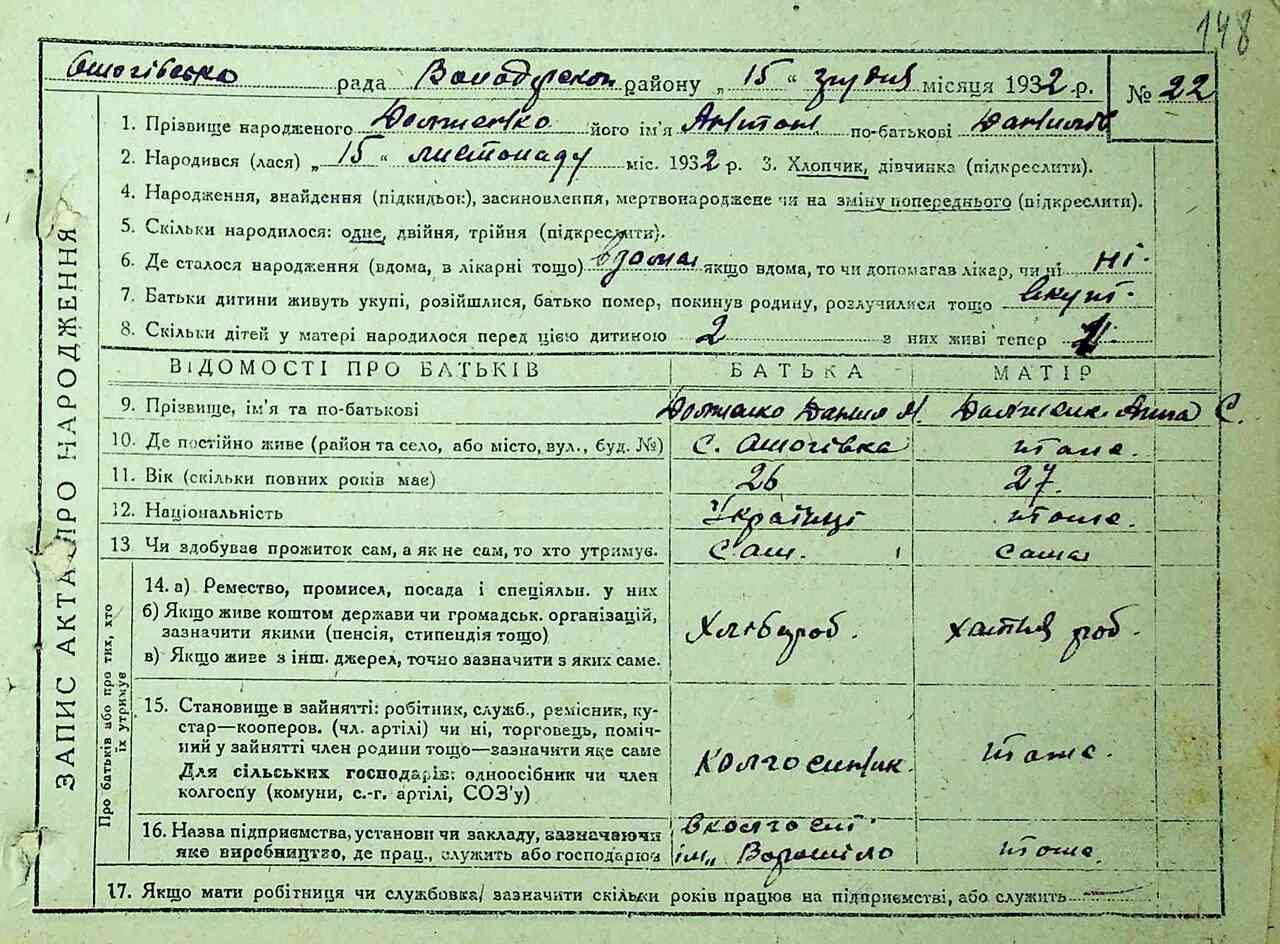 148
рада району „ 15 “ грудня місяця 1932 р. № 22
1. Прізвище народженого Долженко його ім'я Антон по-батькові Данилів
2. Народився (лася) „ 15 “ листопаду міс. 1932 р. 3. Хлопчик, дівчинка (підкреслити).
4. Народження, знайдення (підкидьок), засиновлення, мертвонароджене чи на зміну попереднього (підкреслити).
5. Скільки народилося: одне, двійня, трійня (підкреслити).
6. Де сталося народження (вдома, в лікарні тощо) вдома якщо вдома, то чи допомагав лікар, чи ні ні.
7. Батьки дитини живуть укупі, розійшлися, батько помер, покинув родину, розлучилися тощо вкупі.
8. Скільки дітей у матері народилося перед цією дитиною 2 з них живі тепер
ВІДОМОСТІ ПРО БАТЬКІВ БАТЬКА МАТІР
9. Прізвище, ім'я та по-батькові Долженко Данил М. Долженк. Анна С.
10. Де постійно живе (район та село, або місто, вул., буд. №) с. тоже.
11. Вік (скільки повних років має) 26 27.
12. Національність Українці тоже.
13 Чи здобуває прожиток сам, а як не сам, то хто утримує. сам. сама
14. а) Ремество, промисел, посада і спеціяльн. у них
б) Якщо живе коштом держави чи громадськ. організацій,
зазначити якими (пенсія, стипендія тощо) Хлібороб. хатня роб.
в) Якщо живе з інш. джерел, точно зазначити з яких саме.
15. Становище в зайнятті: робітник, служб., ремісник, ку-
стар—кооперов. (чл. артілі) чи ні, торговець, поміч-
ний у зайнятті член родини тощо—зазначити яке саме
Для сільських господарів: одноосібник чи член
колгоспу (комуни, с.-г. артілі, СОЗ'у) колгоспник. тоже.
16. Назва підприємства, установи чи закладу, зазначаючи в колгоспі
яке виробництво, де прац., служить або господарює ім„ Ворошило тоже.
17. Якщо мати робітниця чи службовка/ зазначити скільки років працює на підприємстві, або служить
ЗАПИС АКТА ПРО НАРОДЖЕННЯ
Про батьків або про тих, хто
їх утримує